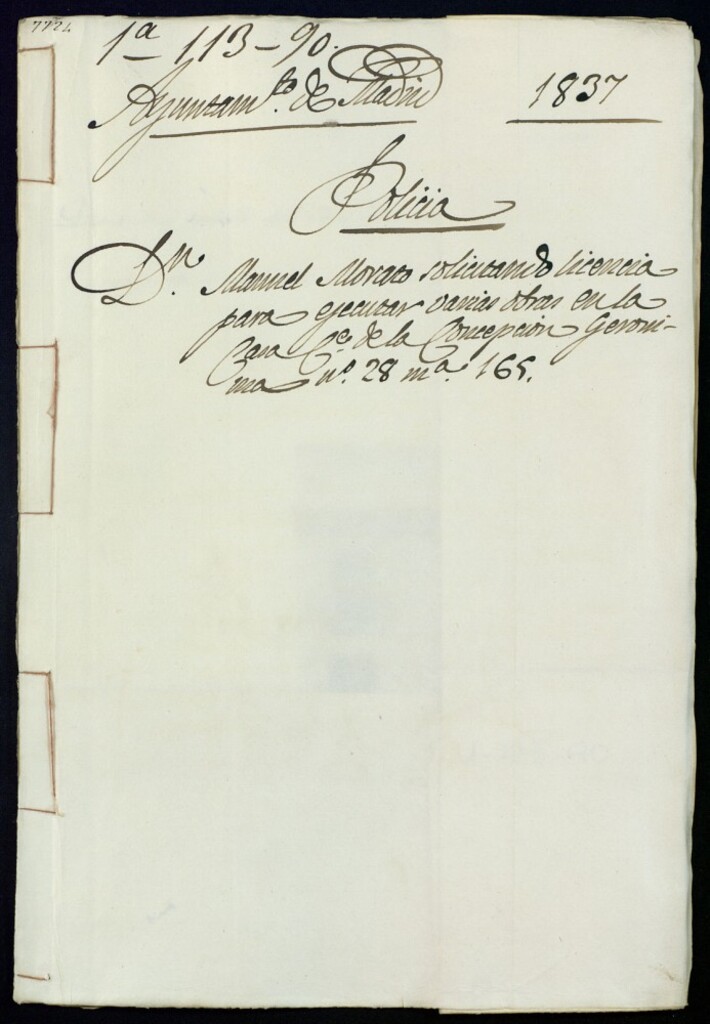 1ª - 113 - 90.
Ayuntamto. de Madrid
1837
Policia
Dn. Manuel Morato solicitando licencia
para ejecutar varias obras en la
Casa Ce. de la Concepcion Geroni-
ma nº. 28 mª. 165.